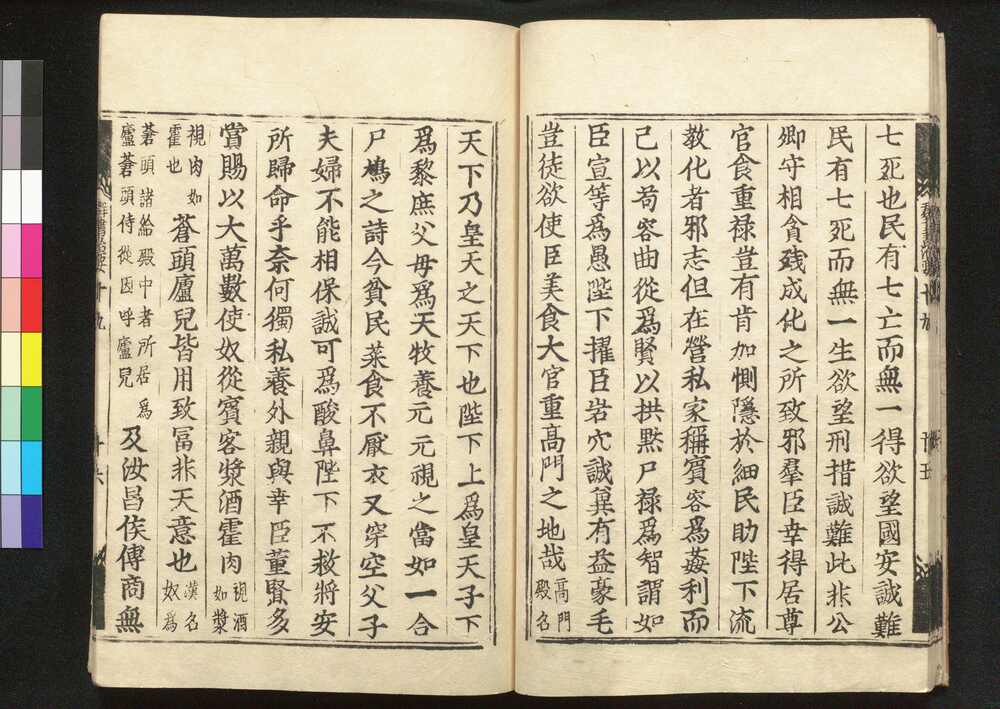 七死也民有七亡而無一得欲望國安誠難
民有七死而無一生欲望刑措誠難此非公
卿守相貪残成化之所致邪羣臣幸得居尊
官食重禄豈有肯加惻隱於細民助陛下流
教化者邪志但在營私家稱賓客爲姦利而
己以苟容曲從爲賢以拱黙尸禄爲智謂如
臣宣等爲愚陛下擢臣岩穴誠冀有益豪毛
豈徒欲使臣美食大官重高門之地哉高門
殿名
天下乃皇天之天下也陛下上爲皇天子下
爲黎庶父母爲天牧養元元視之當如一合
尸鳩之詩今貧民菜食不厭衣又穿空父子
夫婦不能相保誠可爲酸鼻陛下不救將安
所歸命乎奈何獨私養外親與幸臣董賢多
賞賜以大萬數使奴從賓客漿酒霍肉視酒
如漿
視肉如
霍也蒼頭廬兒皆用致冨非天意也漢名
奴爲
蒼頭諸給殿中者所居爲
廬蒼頭侍從因呼廬兒及汝昌侯傅商無
群書治要十九
十六